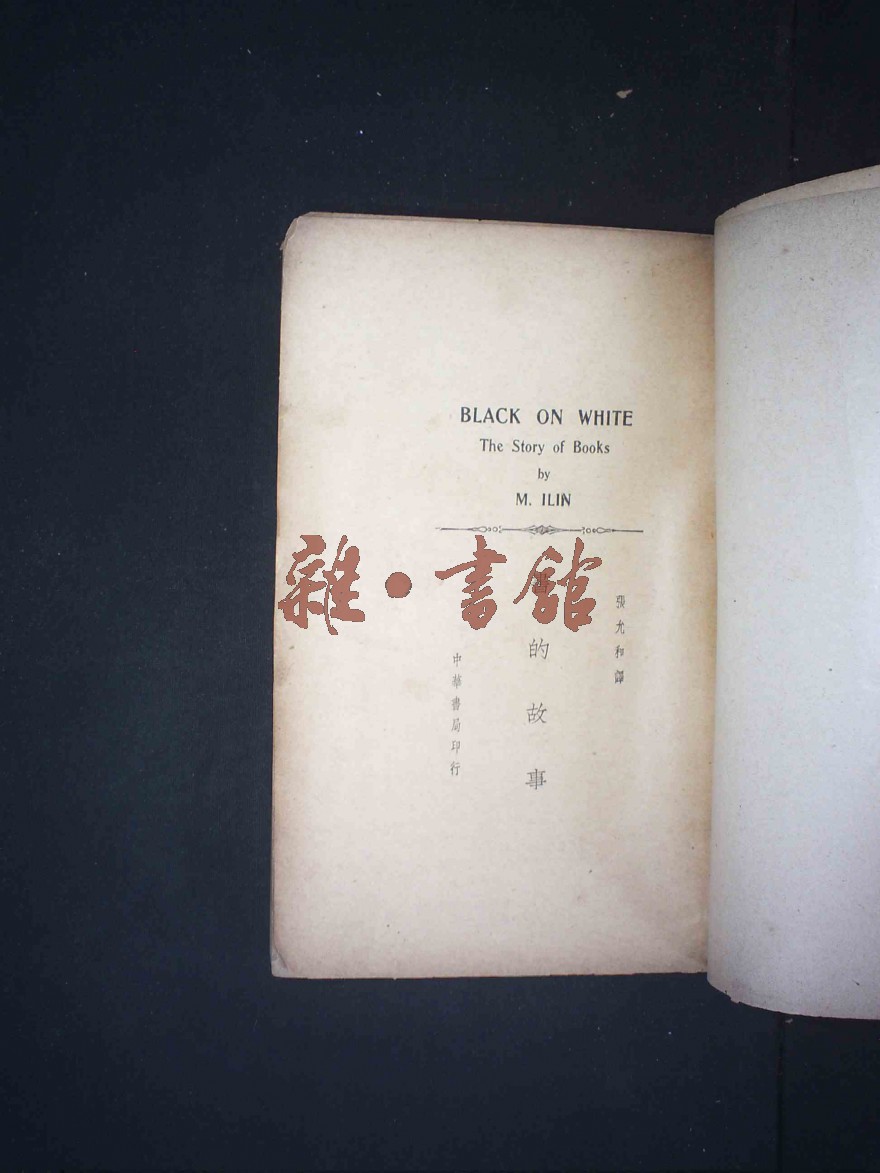 BLACK ON WHITE
The Story of Books
by
M. ILIN
張允和譯
書的故事
中華書局印行
雜·書館